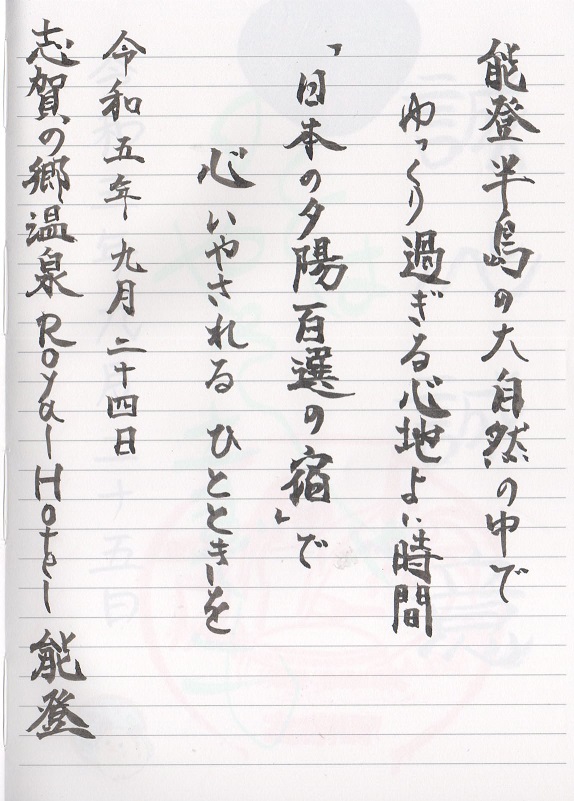 能登半島の大自然の中で
ゆっくり過ぎる心地よい時間
「日本の夕陽百選の宿」で
心いやされるひとときを
令和五年九月二十四日
志賀の郷温泉 Royal Hotel 能登